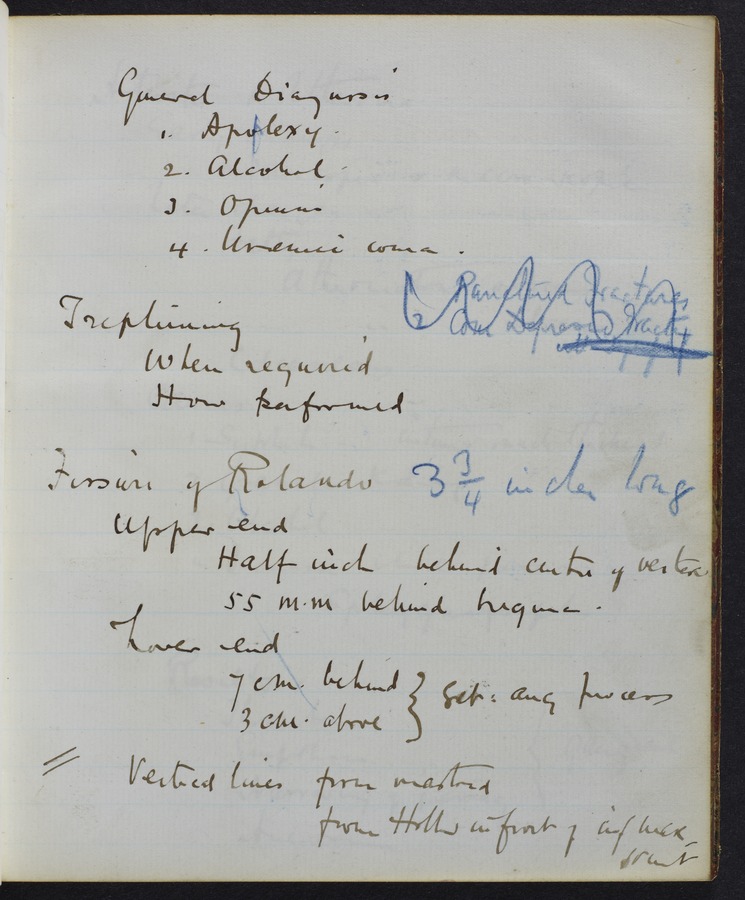 General Diagnosis
1. Apolexy.
2. Alcohol.
3. Opium
4. Uraemic coma.
Punctured Fractures
Com Depressed Fractures
Trephining
When required
How performed
Fissure of Rolando 3 3/4 inches long
Upper end
Half inch behind centre of vertex
55 m.m behind bregma.
Lower end
7 cm. behind } Ext: ang process
3 cm. above
Vertical lines from mastoid
from Hollow in front of inf max